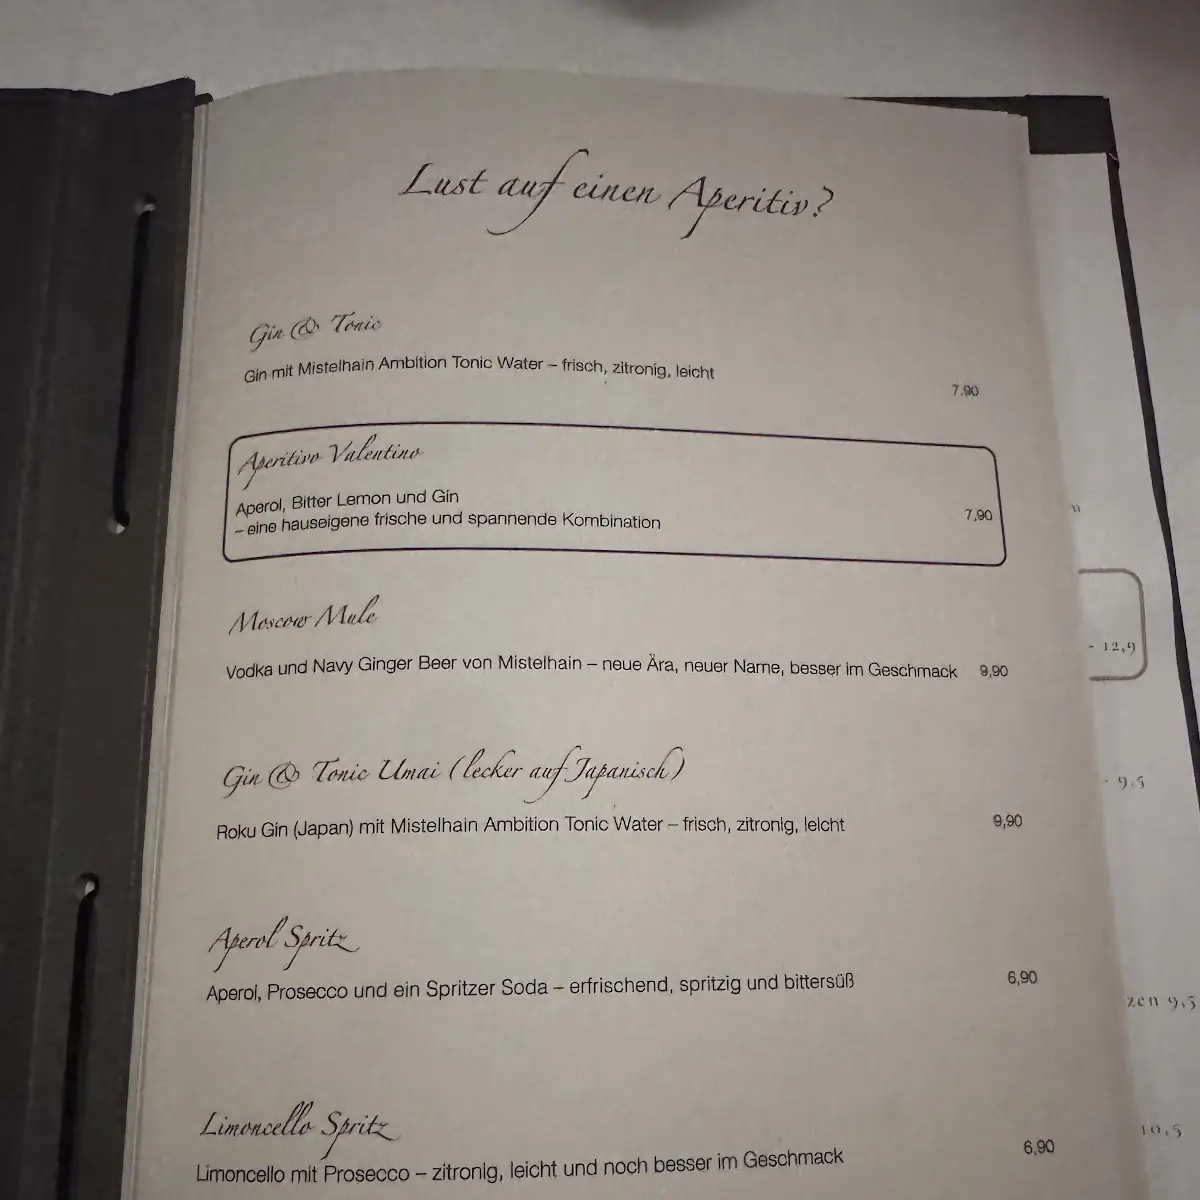 Lust auf einen Aperitiv?
Gin & Tonic
Gin mit Mistelhain Ambition Tonic Water – frisch, zitronig, leicht
7.90
Aperitivo Valentino
Aperol, Bitter Lemon und Gin
– eine hauseigene frische und spannende Kombination 7,90
Moscow Mule
Vodka und Navy Ginger Beer von Mistelhain – neue Ära, neuer Name, besser im Geschmack 9,90
- 12,9
Gin & Tonic Umai (lecker auf Japanisch)
Roku Gin (Japan) mit Mistelhain Ambition Tonic Water – frisch, zitronig, leicht 9,90
9.5
Aperol Spritz
Aperol, Prosecco und ein Spritzer Soda – erfrischend, spritzig und bittersüß 6,90
zen 9,5
Limoncello Spritz
Limoncello mit Prosecco – zitronig, leicht und noch besser im Geschmack 6,90
10,5